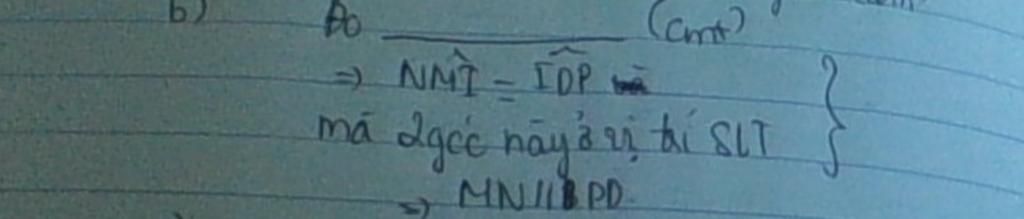 b) Do ________ (cmt)
=> NMI = IDP
mà 2góc này ở vị trí SLT }
=> MN // PD.